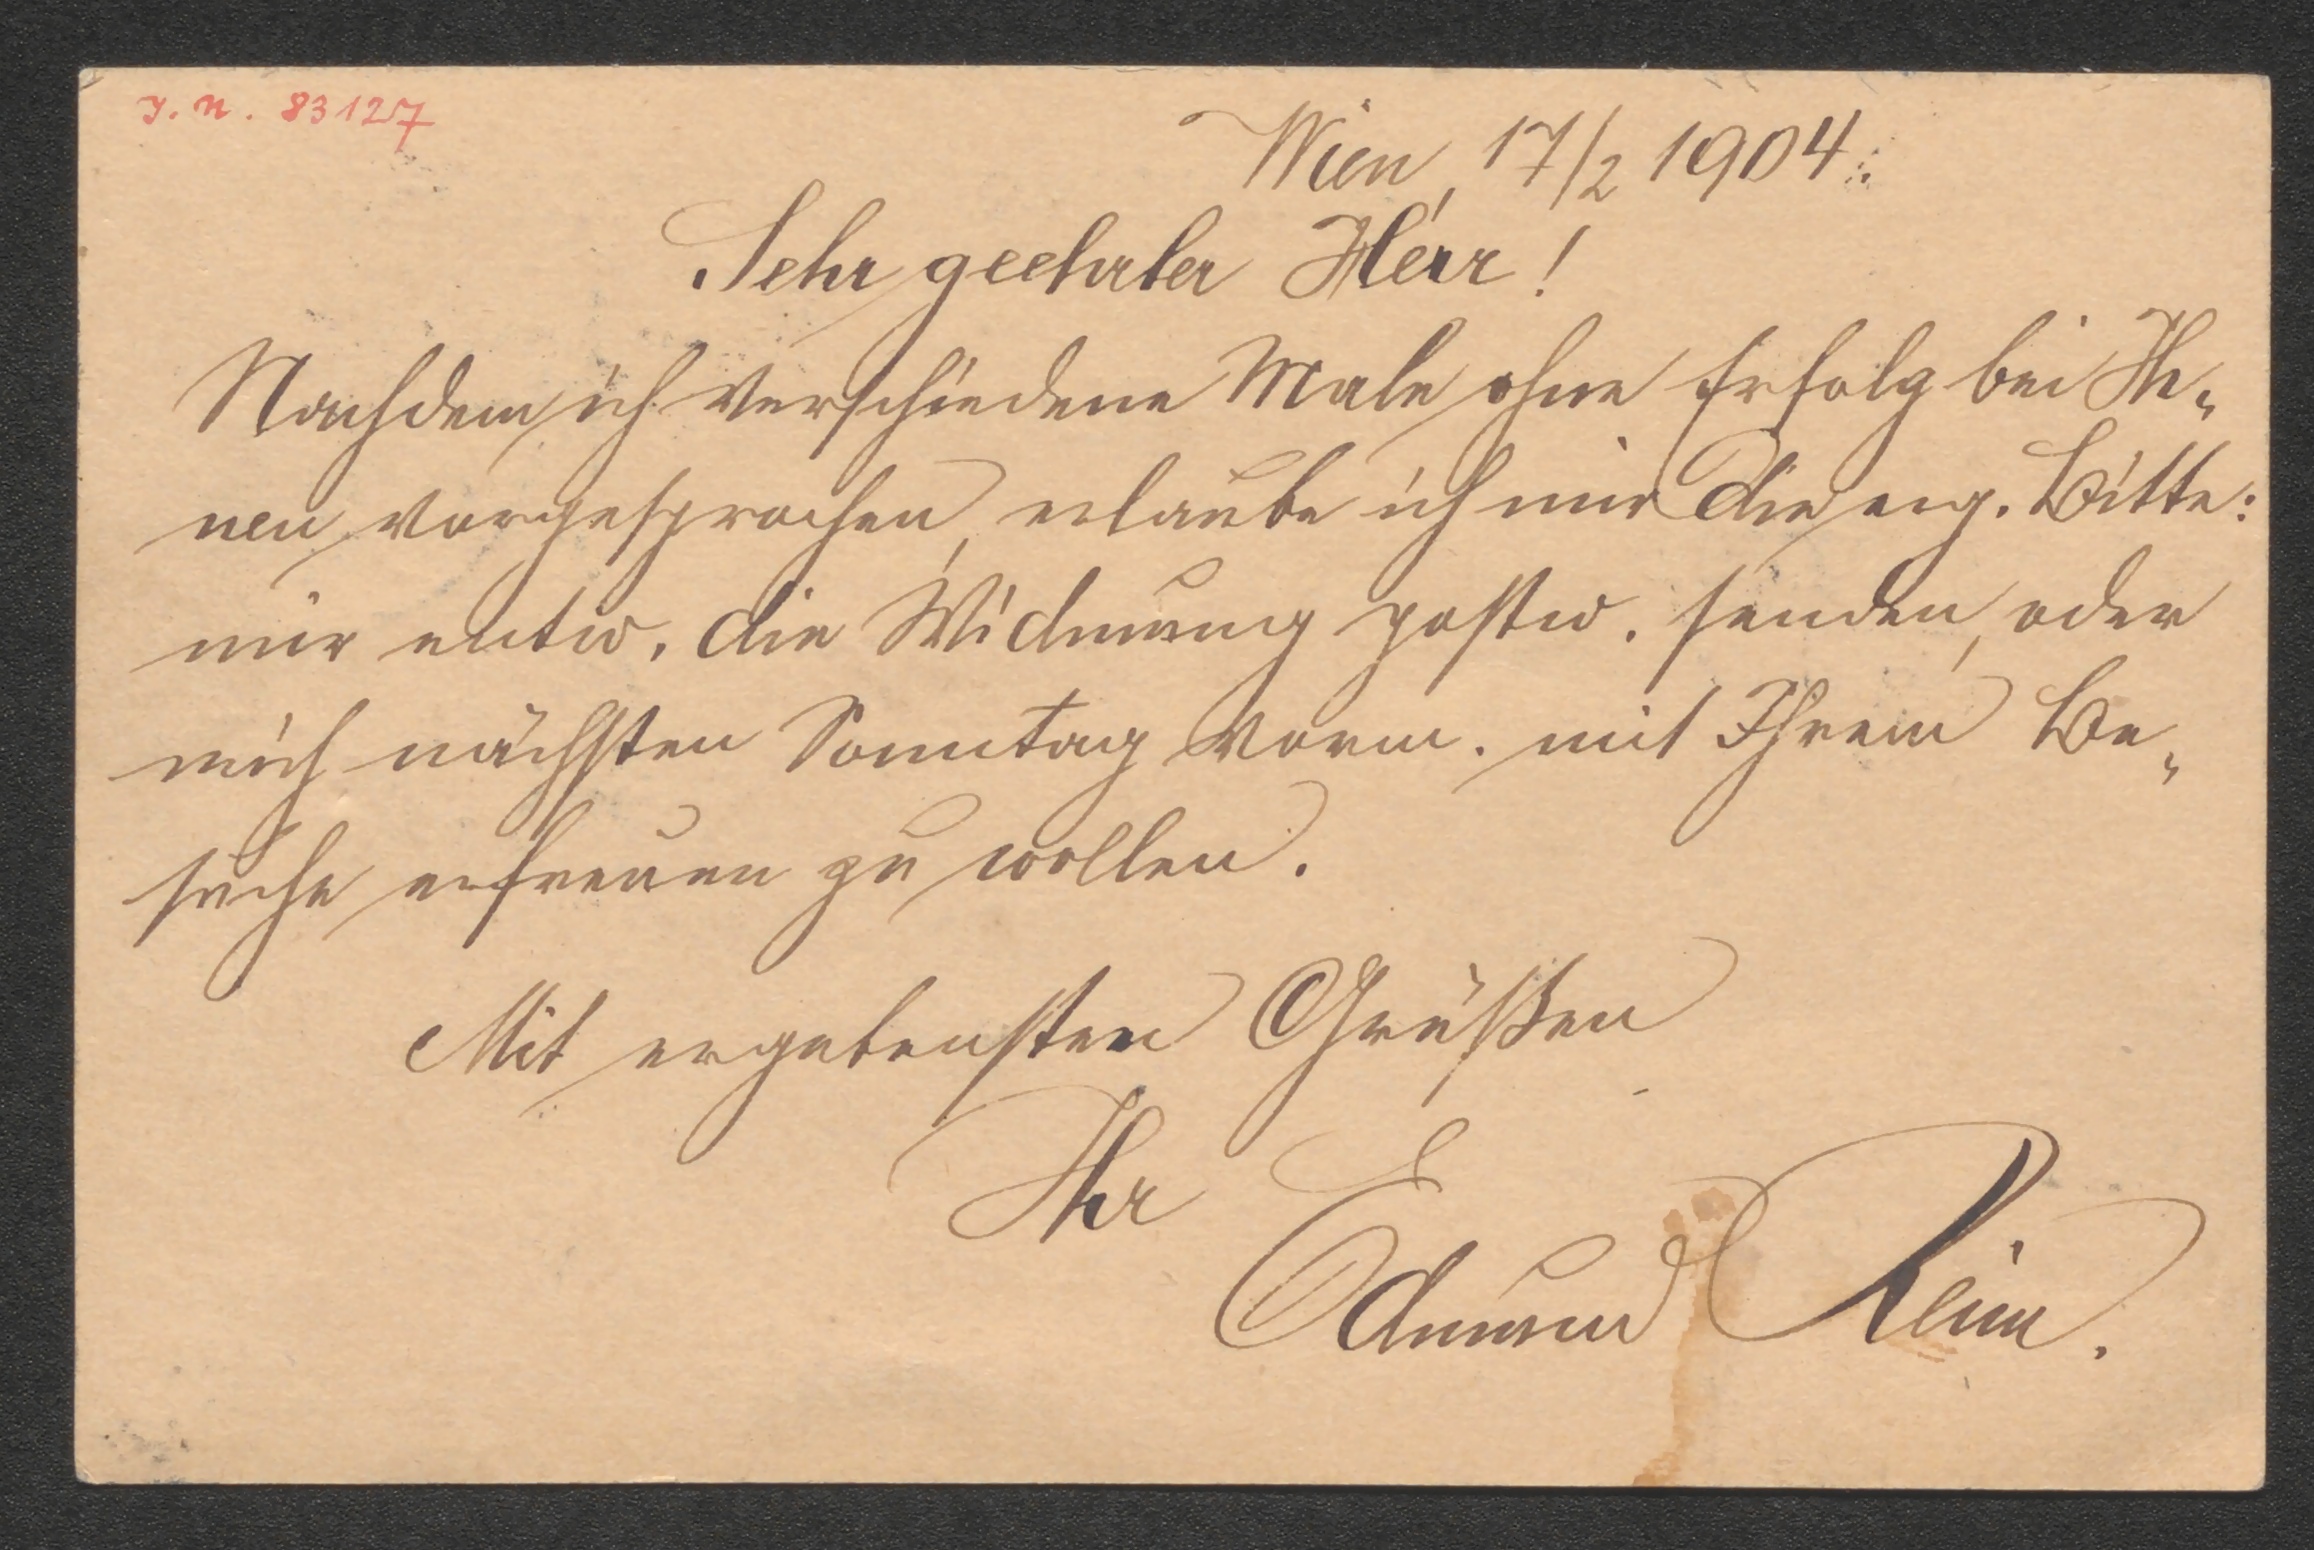 J. N. 83127
Wien, 17/2 1904.
Sehr geehrter Herr!
Nachdem ich verschiedene Male ohne Erfolg bei Ih-
nen vorgesprochen, erlaube ich mir die erg. Bitte:
mir entw. die Widmung postw. senden, oder
mich nächsten Sonntag Vorm. mit Ihrem Be-
suche erfreuen zu wollen.
Mit ergebensten Grüßen
Ihr
Edmund Reim.